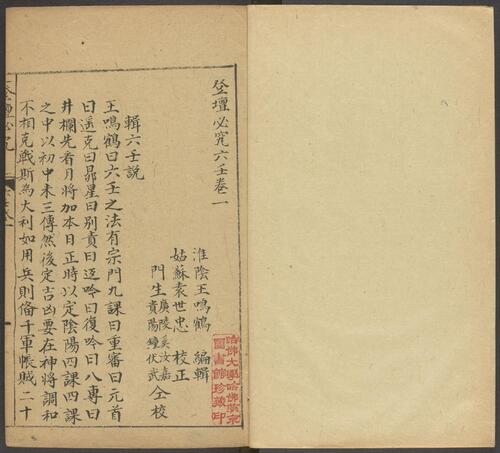 登壇必究六壬卷一
淮陰王鳴鶴 編輯
姑蘇袁世忠 校正
門生廣陵奚汝嘉
貴陽鍾伏武 仝校
輯六壬說
王鳴鶴曰六壬之法有宗門九課曰重審曰元首
曰遥克曰昴星曰別責曰返吟曰復吟曰八專曰
井欄先看月將加本日正時以定陰陽四課四課
之中以初中末三傳然後定吉凶要在神將調和
不相克戰斯為大利如用兵則偹千軍帳賊二十
哈佛大學哈佛燕京
圖書館珍藏印
登壇必究